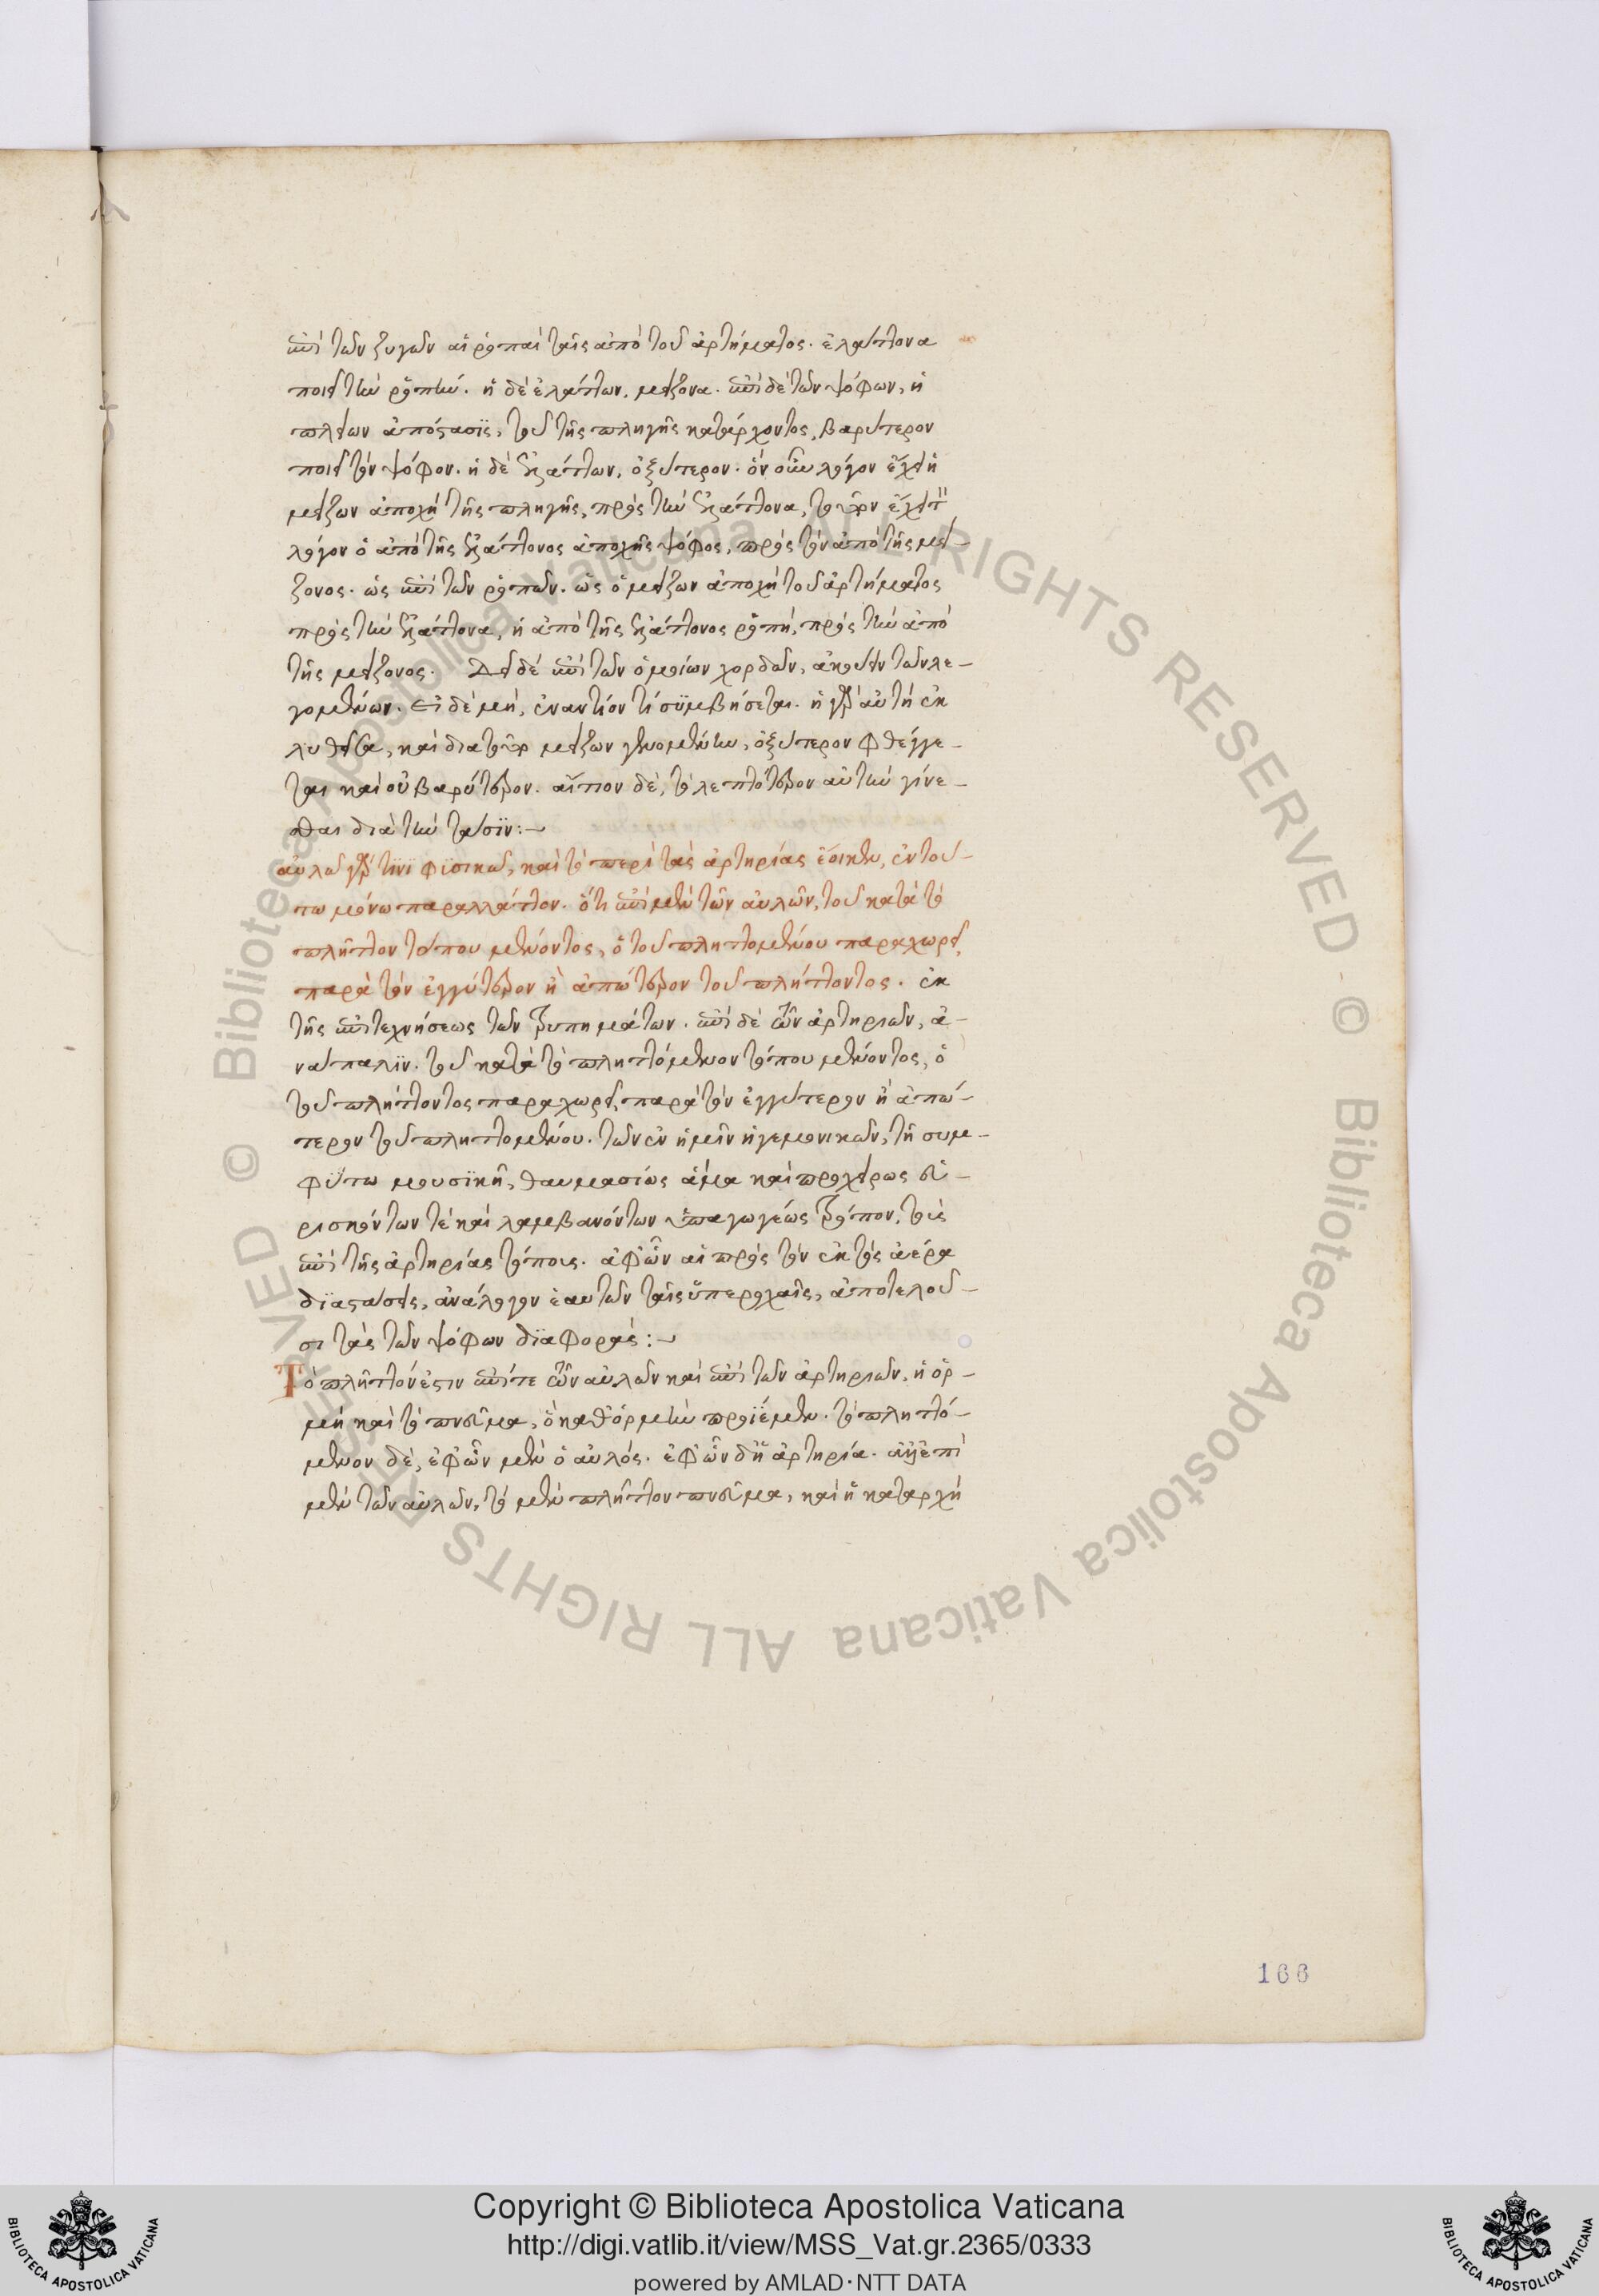 ἐπὶ τῶν ζυγῶν αἱ ῥοπαὶ ταῖς ἀπὸ τοῦ ἀρτήματος. ἐλάττονα
ποιεῖ τὴν ῥοπήν. ἡ δὲ ἐλάττων, μείζονα. ἐπὶ δὲ τῶν ψόφων, ἡ
πλείων ἀπόστασϊς, τοῦ τῆς πληγῆς κατάρχοντος, βαρύτερον
ποιεῖ τὸν ψόφον. ἡ δὲ ἐλάττων, ὀξύτερον. ὃν οὖν λόγον ἔχει ἡ
μείζων ἀποχὴ τῆς πληγῆς, πρὸς τὴν ἐλάττονα, τοῦτον ἔχει
λόγον ὁ ἀπὸ τῆς ἐλάττονος ἀποχῆς ψόφος, πρὸς τὸν ἀπὸ τῆς μεί-
ζονος. ὡς ἐπὶ τῶν ῥοπῶν. ὡς ὁ μείζων ἀποχὴ τοῦ ἀρτήματος
πρὸς τὴν ἐλάττονα, ἡ ἀπὸ τῆς ἐλάττονος ῥοπὴ, πρὸς τὴν ἀπὸ
τῆς μείζονος. Δεῖ δὲ ἐπὶ τῶν ὁμοίων χορδῶν, ἀκούειν τῶν λε-
γομένων. Εἰ δὲ μὴ, ἐναντίον τί συμβήσεται. ἡ γὰρ αὐτὴ ἐκ
λυθεῖσα, καὶ διατοῦτο μείζων γενομένην, ὀξύτερον φθέγγε-
ται καὶ οὐ βαρύτερον. αἴτιον δὲ, τὸ λεπτότερον αὐτὴν γίνε-
σθαι διὰ τὴν τάσϊν:~
αὐλῷ γάρ τϊνι φϋσικῷ, καὶ τὸ περὶ τὰς ἀρτηρίας ἔοικεν, ἐν τού-
τω μόνω παραλλάττον. ὅτι ἐπὶ μὲν τῶν αὐλῶν, τοῦ κατὰ τὸ
πλῆττον τόπου μένοντος, ὁ τοῦ πληττομένου παραχωρεῖ,
παρὰ τὸν ἐγγύτερον ἢ ἀπώτερον τοῦ πλήττοντος. ἐκ
τῆς ἐπιτεχνήσεως τῶν τρυπημάτων. ἐπὶ δὲ τῶν ἀρτηριῶν, ἀ-
νάπαλϊν. τοῦ κατὰ τὸ πληττόμενον τόπου μένοντος, ὁ
τοῦ πλήττοντος παραχωρεῖ, παρὰ τὸν ἐγγύτερον ἢ ἀπώ-
τερον τοῦ πληττομένου. τῶν ἐν ἡμῖν ἡγεμονικῶν, τῇ συμ-
φύτω μουσϊκῇ, θαυμασίως ἅμα καὶ προχείρως εὑ-
ρισκόντων τὲ καὶ λαμβανόντων ὑπαγωγέως τρόπον, τοὺς
ἐπὶ τῆς ἀρτηρίας τόπους. ἀφ' ὧν αἱ πρὸς τὸν ἐκτὸς ἀέρα
διαστάσεις, ἀνάλογον ἑαυτῶν ταῖς ὑπεροχαῖς, ἀποτελοῦ-
σι τὰς τῶν ψόφων διαφοράς:~
Τὸ πλῆττόν ἐστιν ἐπί τε τῶν αὐλῶν καὶ ἐπὶ τῶν ἀρτηριῶν, ἡ ὁρ-
μὴ καὶ τὸ πνεῦμα, ὃ καθ' ὁρμὴν προϊέμεν. τὸ πληττό-
μενον δὲ, ἐφ' ὧν μὲν ὁ αὐλός. ἐφ' ὧν δ' ἡ ἀρτηρία. ἀλλ' ἐπὶ
μὲν τῶν αὐλῶν, τὸ μὲν πλῆττον πνεῦμα, καὶ ἡ καταρχὴ
166
Copyright © Biblioteca Apostolica Vaticana
http://digi.vatlib.it/view/MSS_Vat.gr.2365/0333
powered by AMLAD·NTT DATA